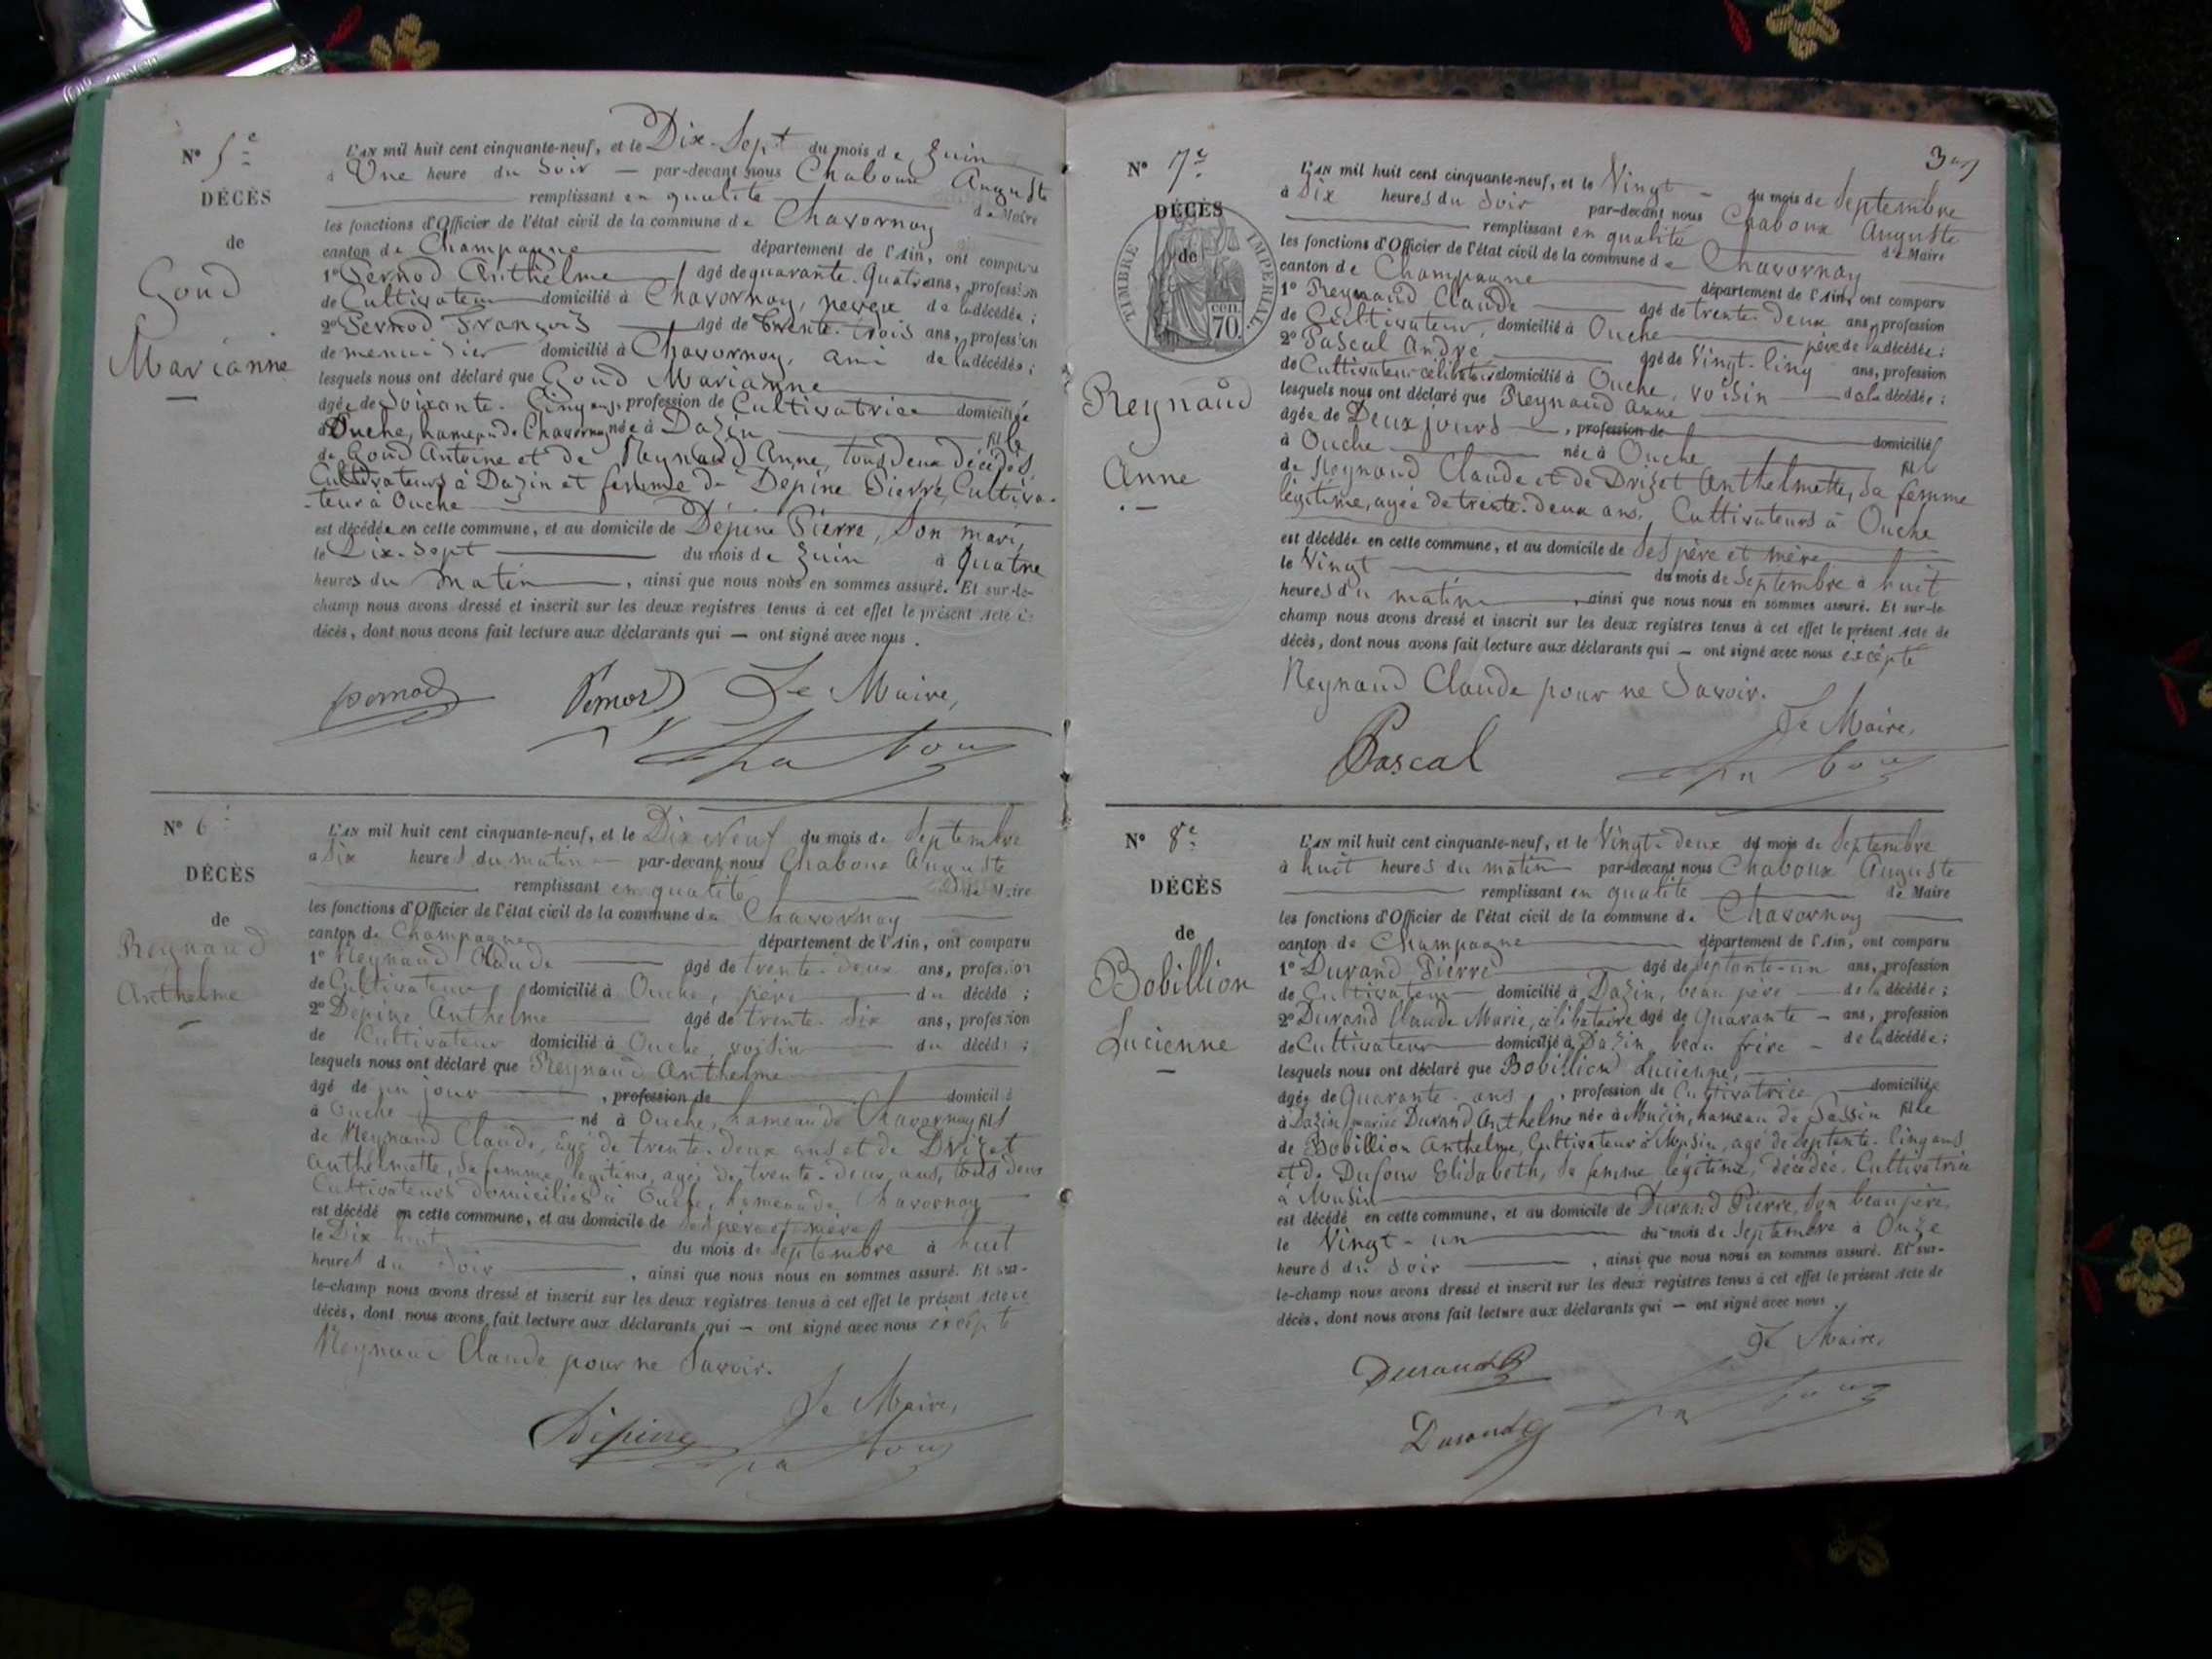 N° 5e
DÉCÈS
de
Goud
Marianne
L'AN mil huit cent cinquante-neuf, et le Dix-Sept du mois de Juin
à Une heure du Soir — par-devant nous Chaboux Auguste
remplissant en qualité de Maire
les fonctions d'Officier de l'état civil de la commune de Chavornay
canton de Champagne département de l'Ain, ont comparu
1° Pernod Anthelme âgé de quarante-Quatre ans, profession
de Cultivateur domicilié à Chavornay, neveu de la décédée ;
2° Pernod François âgé de Trente-trois ans, profession
de menuisier domicilié à Chavornay, ami de la décédée ;
lesquels nous ont déclaré que Goud Marianne
âgée de Soixante-Cinq ans, profession de Cultivatrice domiciliée
à Ouche, hameau de Chavornay née à Dazin fille
de Goud Antoine et de Reynaud Anne, tous deux décédés
Cultivateurs à Dazin et femme de Dépine Pierre, Cultiva-
-teur à Ouche
est décédée en cette commune, et au domicile de Dépine Pierre, Son mari,
le Dix-Sept du mois de Juin à Quatre
heures du matin, ainsi que nous nous en sommes assuré. Et sur-le-
champ nous avons dressé et inscrit sur les deux registres tenus à cet effet le présent Acte de
décès, dont nous avons fait lecture aux déclarants qui — ont signé avec nous.
pernod Pernod Le Maire,
Chaboux
N° 6e
DÉCÈS
de
Reynaud
Anthelme
L'AN mil huit cent cinquante-neuf, et le Dix Neuf du mois de Septembre
à Six heures du matin — par-devant nous Chaboux Auguste
remplissant en qualité de Maire
les fonctions d'Officier de l'état civil de la commune de Chavornay
canton de Champagne département de l'Ain, ont comparu
1° Reynaud Claude âgé de trente-deux ans, profession
de Cultivateur, domicilié à Ouche, père du décédé ;
2° Dépine Anthelme âgé de trente-Six ans, profession
de Cultivateur domicilié à Ouche, voisin du décédé ;
lesquels nous ont déclaré que Reynaud Anthelme
âgé de un jour, profession de domicilié
à Ouche né à Ouche, hameau de Chavornay fils
de Reynaud Claude, âgé de trente-deux ans et de Drizet
Anthelmette, Sa femme légitime, agée de trente-deux ans, tous deux
Cultivateurs domiciliés à Ouche, hameau de Chavornay
est décédé en cette commune, et au domicile de Ses père et mère
le Dix huit du mois de Septembre à huit
heures du Soir, ainsi que nous nous en sommes assuré. Et sur-
le-champ nous avons dressé et inscrit sur les deux registres tenus à cet effet le présent Acte de
décès, dont nous avons fait lecture aux déclarants qui — ont signé avec nous excepté
Reynaud Claude pour ne Savoir.
Le Maire,
Dépine Chaboux
N° 7e
DÉCÈS
de
TIMBRE IMPERIAL
cen. 70.
Reynaud
Anne
L'AN mil huit cent cinquante-neuf, et le Vingt — du mois de Septembre
à Six heures du Soir par-devant nous Chaboux Auguste
remplissant en qualité de Maire
les fonctions d'Officier de l'état civil de la commune de Chavornay
canton de Champagne département de l'Ain, ont comparu
1° Reynaud Claude âgé de trente-Deux ans, profession
de Cultivateur, domicilié à Ouche père de la décédée ;
2° Pascal André âgé de Vingt-Cinq ans, profession
de Cultivateur célibataire domicilié à Ouche, voisin de la décédée ;
lesquels nous ont déclaré que Reynaud Anne
âgée de Deux jours, profession de domiciliée
à Ouche née à Ouche fille
de Reynaud Claude et de Drizet Anthelmette, Sa femme
légitime, agée de trente-deux ans, Cultivateurs à Ouche
est décédée en cette commune, et au domicile de Ses père et mère
le Vingt du mois de Septembre à huit
heures du matin, ainsi que nous nous en sommes assuré. Et sur-le
champ nous avons dressé et inscrit sur les deux registres tenus à cet effet le présent Acte de
décès, dont nous avons fait lecture aux déclarants qui — ont signé avec nous excepté
Reynaud Claude pour ne Savoir.
Le Maire,
Pascal Chaboux
N° 8e
DÉCÈS
de
Bobillion
Lucienne
L'AN mil huit cent cinquante-neuf, et le Vingt-deux du mois de Septembre
à huit heures du matin par-devant nous Chaboux Auguste
remplissant en qualité de Maire
les fonctions d'Officier de l'état civil de la commune de Chavornay
canton de Champagne département de l'Ain, ont comparu
1° Durand Pierre âgé de Septante-un ans, profession
de Cultivateur domicilié à Dazin, beau père de la décédée ;
2° Durand Claude Marie, célibataire âgé de Quarante — ans, profession
de Cultivateur domicilié à Dazin, beau frère — de la décédée ;
lesquels nous ont déclaré que Bobillion Lucienne,
âgée de Quarante ans, profession de Cultivatrice domiciliée
à Dazin, mariée Durand Anthelme née à Musin, hameau de fille
de Bobillion Anthelme, Cultivateur à Musin, agé de Septante-Cinq ans
et de Dufour Elisabeth, Sa femme légitime, décédée, Cultivatrice
à Musin
est décédé en cette commune, et au domicile de Durand Pierre, Son beau père,
le Vingt-un du mois de Septembre à Onze
heures du Soir, ainsi que nous nous en sommes assuré. Et sur-
le-champ nous avons dressé et inscrit sur les deux registres tenus à cet effet le présent Acte de
décès, dont nous avons fait lecture aux déclarants qui — ont signé avec nous.
Le Maire,
Durand Chaboux
Durand